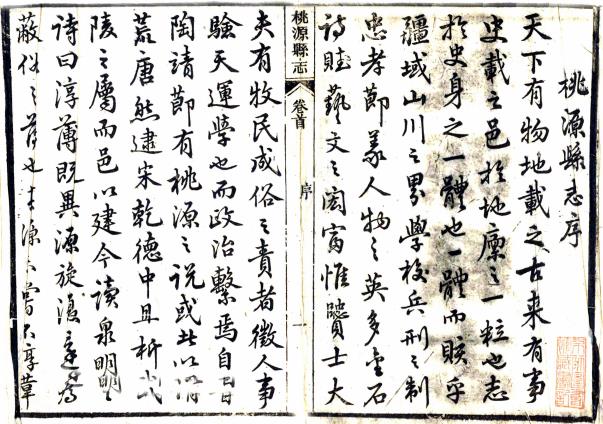 桃源縣志序
天下有物地載之古来有事
史載之邑於地廪之一粒也志
於史身之一體也一體而賅乎
疆域山川之界學校兵刑之制
忠孝節義人物之英多金石
詩賦藝文之閎富惟賢士大
桃源縣志
卷首
序
一
夫有牧民成俗之責者徵人事
驗天運學也而政治繫焉自晉
陶靖節有桃源之說或此以謂
荒唐然逮宋乾德中且析武
陵之屬而邑以建今讀泉明
詩曰淳薄既異源旋復還
蔽俗之舊也源不嘗不厚